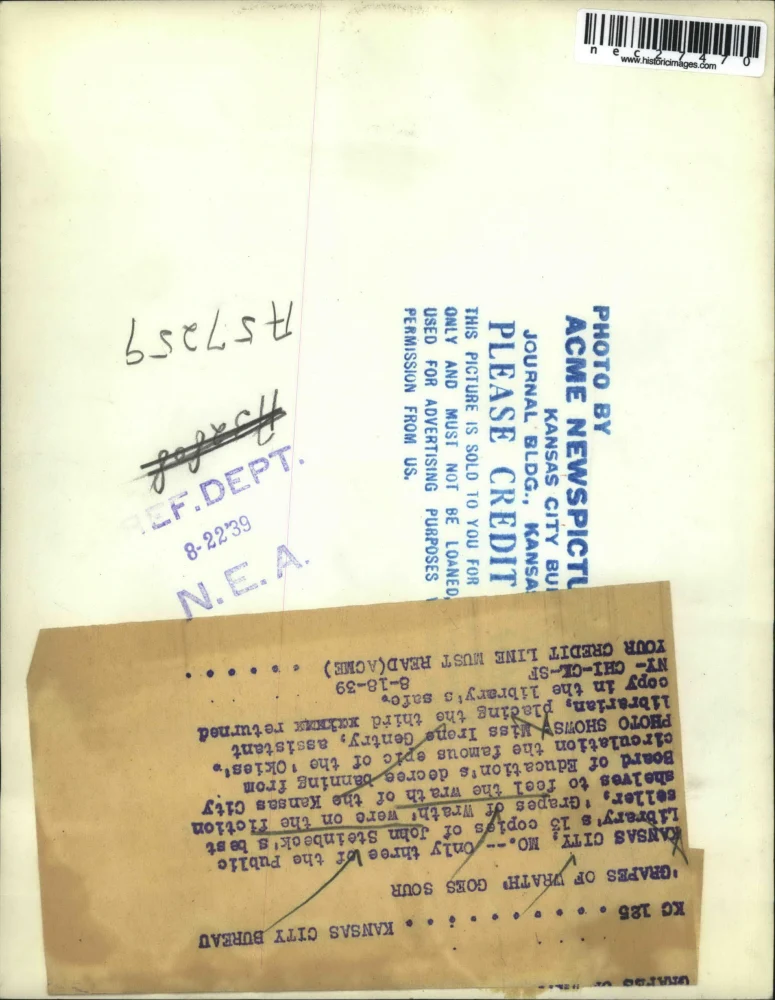 nec27470
www.historicimages.com
PHOTO BY
ACME NEWSPICTU
KANSAS CITY BU
JOURNAL BLDG., KANSA
PLEASE CREDIT
THIS PICTURE IS SOLD TO YOU FOR
ONLY AND MUST NOT BE LOANED,
USED FOR ADVERTISING PURPOSES
PERMISSION FROM US.
A57259
REF. DEPT.
8-22'39
N. E. A.
KC 125 . . . . . . . . . . . KANSAS CITY BUREAU
'GRAPES OF WRATH' GOES SOUR
KANSAS CITY, MO.-- Only three of the Public
Library's 13 copies of John Steinbeck's best
seller, 'Grapes of Wrath' were on the fiction
shelves to feel the wrath of the Kansas City
Board of Education's decree banning from
circulation the famous epic of the 'Okies'.
PHOTO SHOWS Miss Irene Gentry, assistant
librarian, placing the third xxixxxx returned
copy in the library's safe.
NY- CHI-CL-SF 8-18-39
YOUR CREDIT LINE MUST READ(ACME) . . . . . .